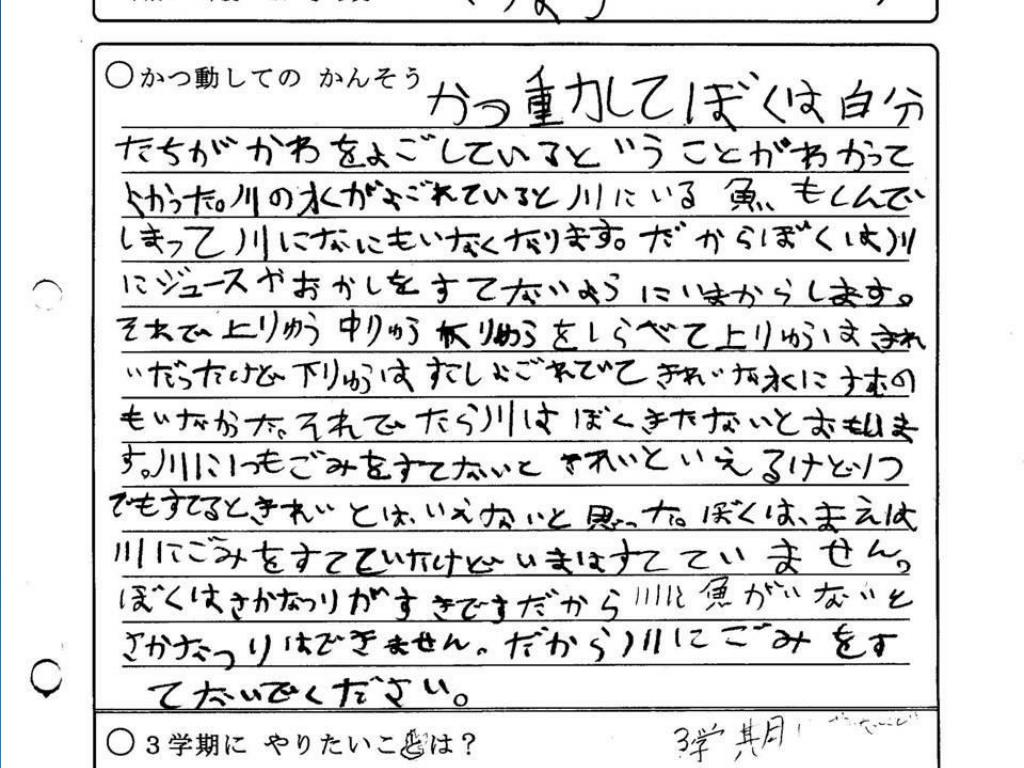 ○かつ動しての かんそう
かつ動してぼくは自分
たちがかわをよごしているということがわかって
よかった。川の水がよごれていると川にいる魚、もしんで
しまって川になにもいなくなります。だからぼくは川
にジュースやおかしをすてないようにいまからします。
それで上りゅう中りゅう下りゅうをしらべて上りゅうはきれ
いだったけど下りゅうはすこしよごれてていてきれいな水にすむの
もいなかた。それでたら川はぼくきたないとおもいま
す。川にいつもごみをすてないときれいといえるけどいつ
でもすてるときれいとは、いえないと思った。ぼくは、まえは
川にごみをすてていたけどいまはすてていません。
ぼくはさかなつりがすきですだから川に魚がいないと
さかなつりはできません。だから川にごみをす
てないでください。
○3学期に やりたいことは?
3学期